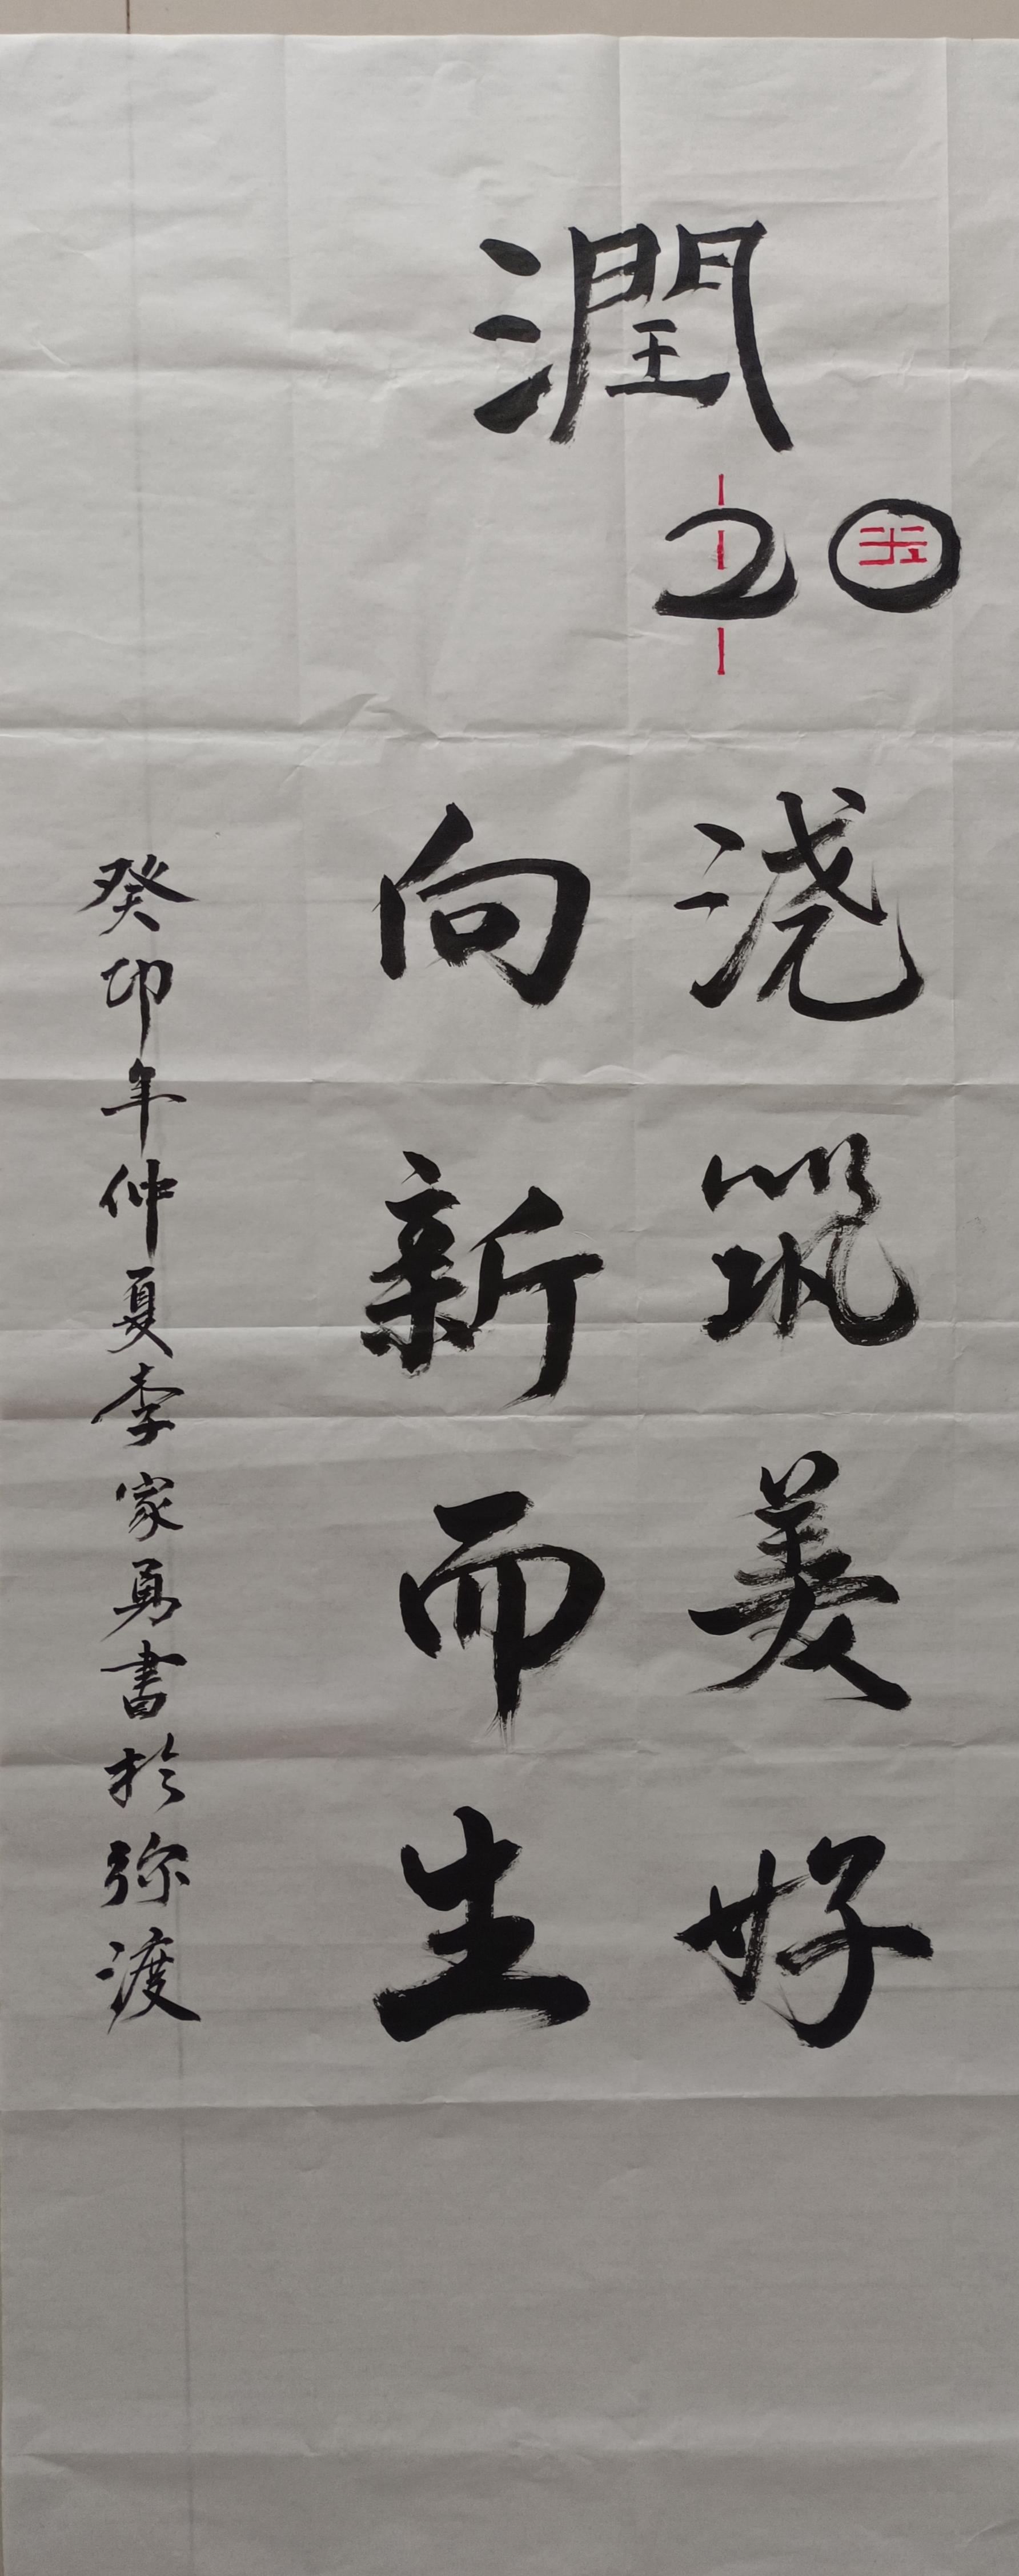 潤
20
浇筑美好
向新而生
癸卯年仲夏李家勇書於弥渡